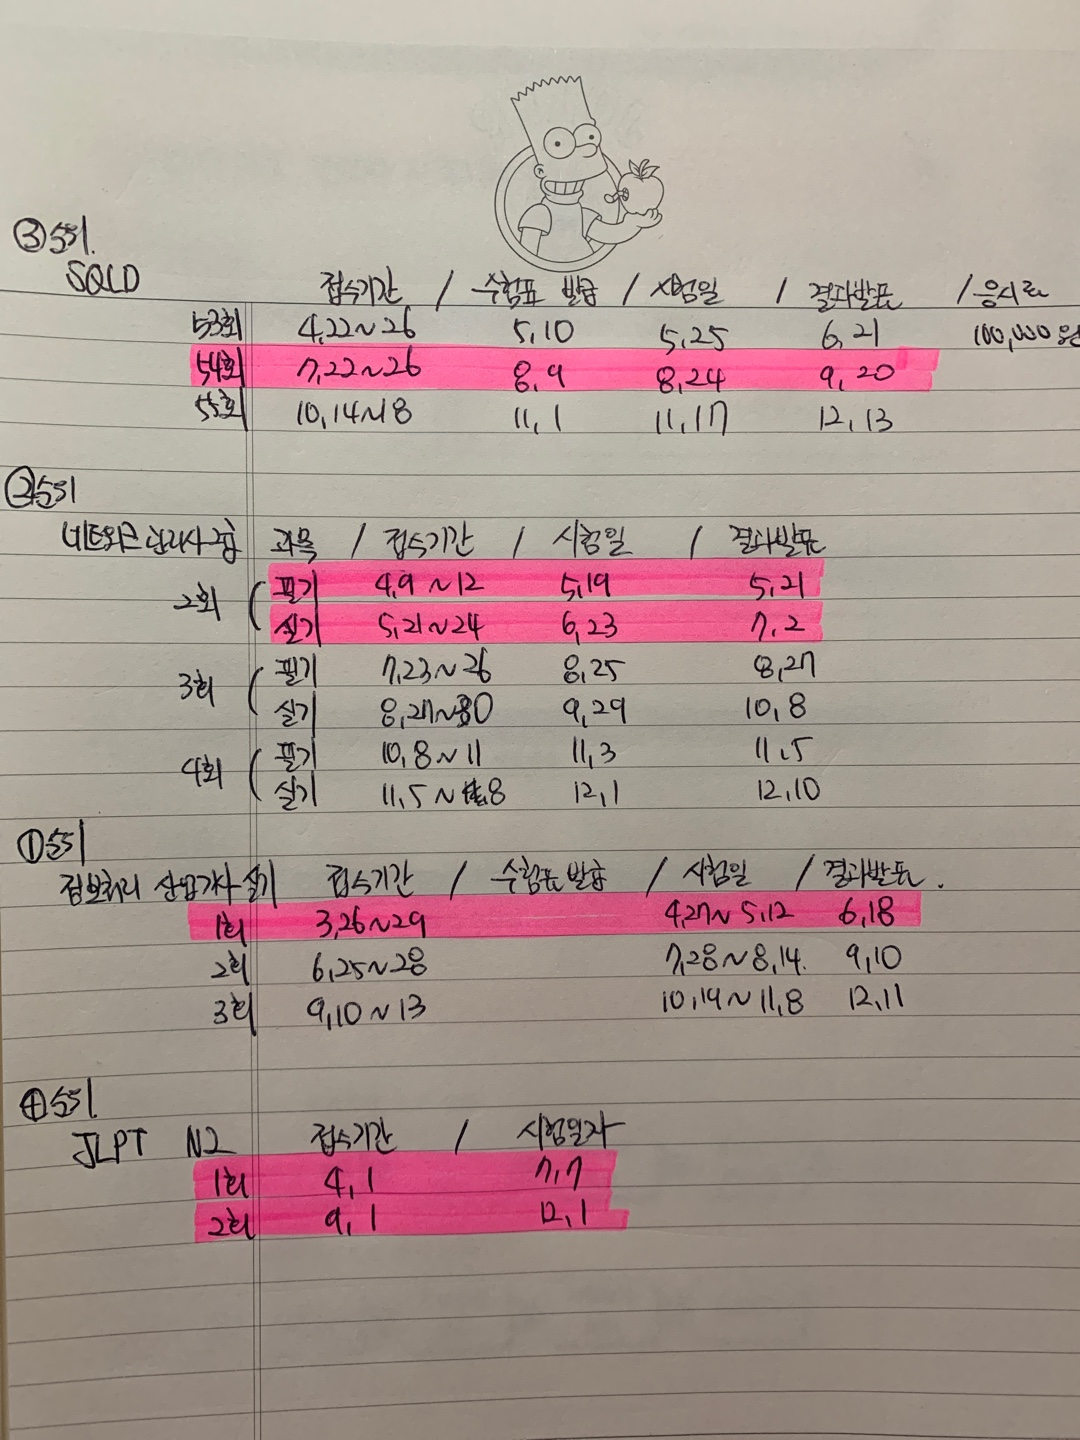 ③순위.
SQLD
접수기간 / 수험표 발급 / 시험일 / 결과발표 / 응시료
53회 4,22~26 5,10 5,25 6,21 100,000원
54회 7,22~26 8,9 8,24 9,20
55회 10,14~18 11,1 11,17 12,13
②순위
네트워크 관리사 2급 과목 / 접수기간 / 시험일 / 결과발표
2회 ( 필기 4,9~12 5,19 5,21
실기 5,21~24 6,23 7,2
3회 ( 필기 7,23~26 8,25 8,27
실기 8,27~30 9,29 10,8
4회 ( 필기 10,8~11 11,3 11,5
실기 11,5~8 12,1 12,10
①순위
정보처리 산업기사 실기 접수기간 / 수험표 발급 / 시험일 / 결과발표.
1회 3,26~29 4,27~5,12 6,18
2회 6,25~28 7,28~8,14. 9,10
3회 9,10~13 10,19~11,8 12,11
④순위.
JLPT N2 접수기간 / 시험일자
1회 4,1 7,7
2회 9,1 12,1